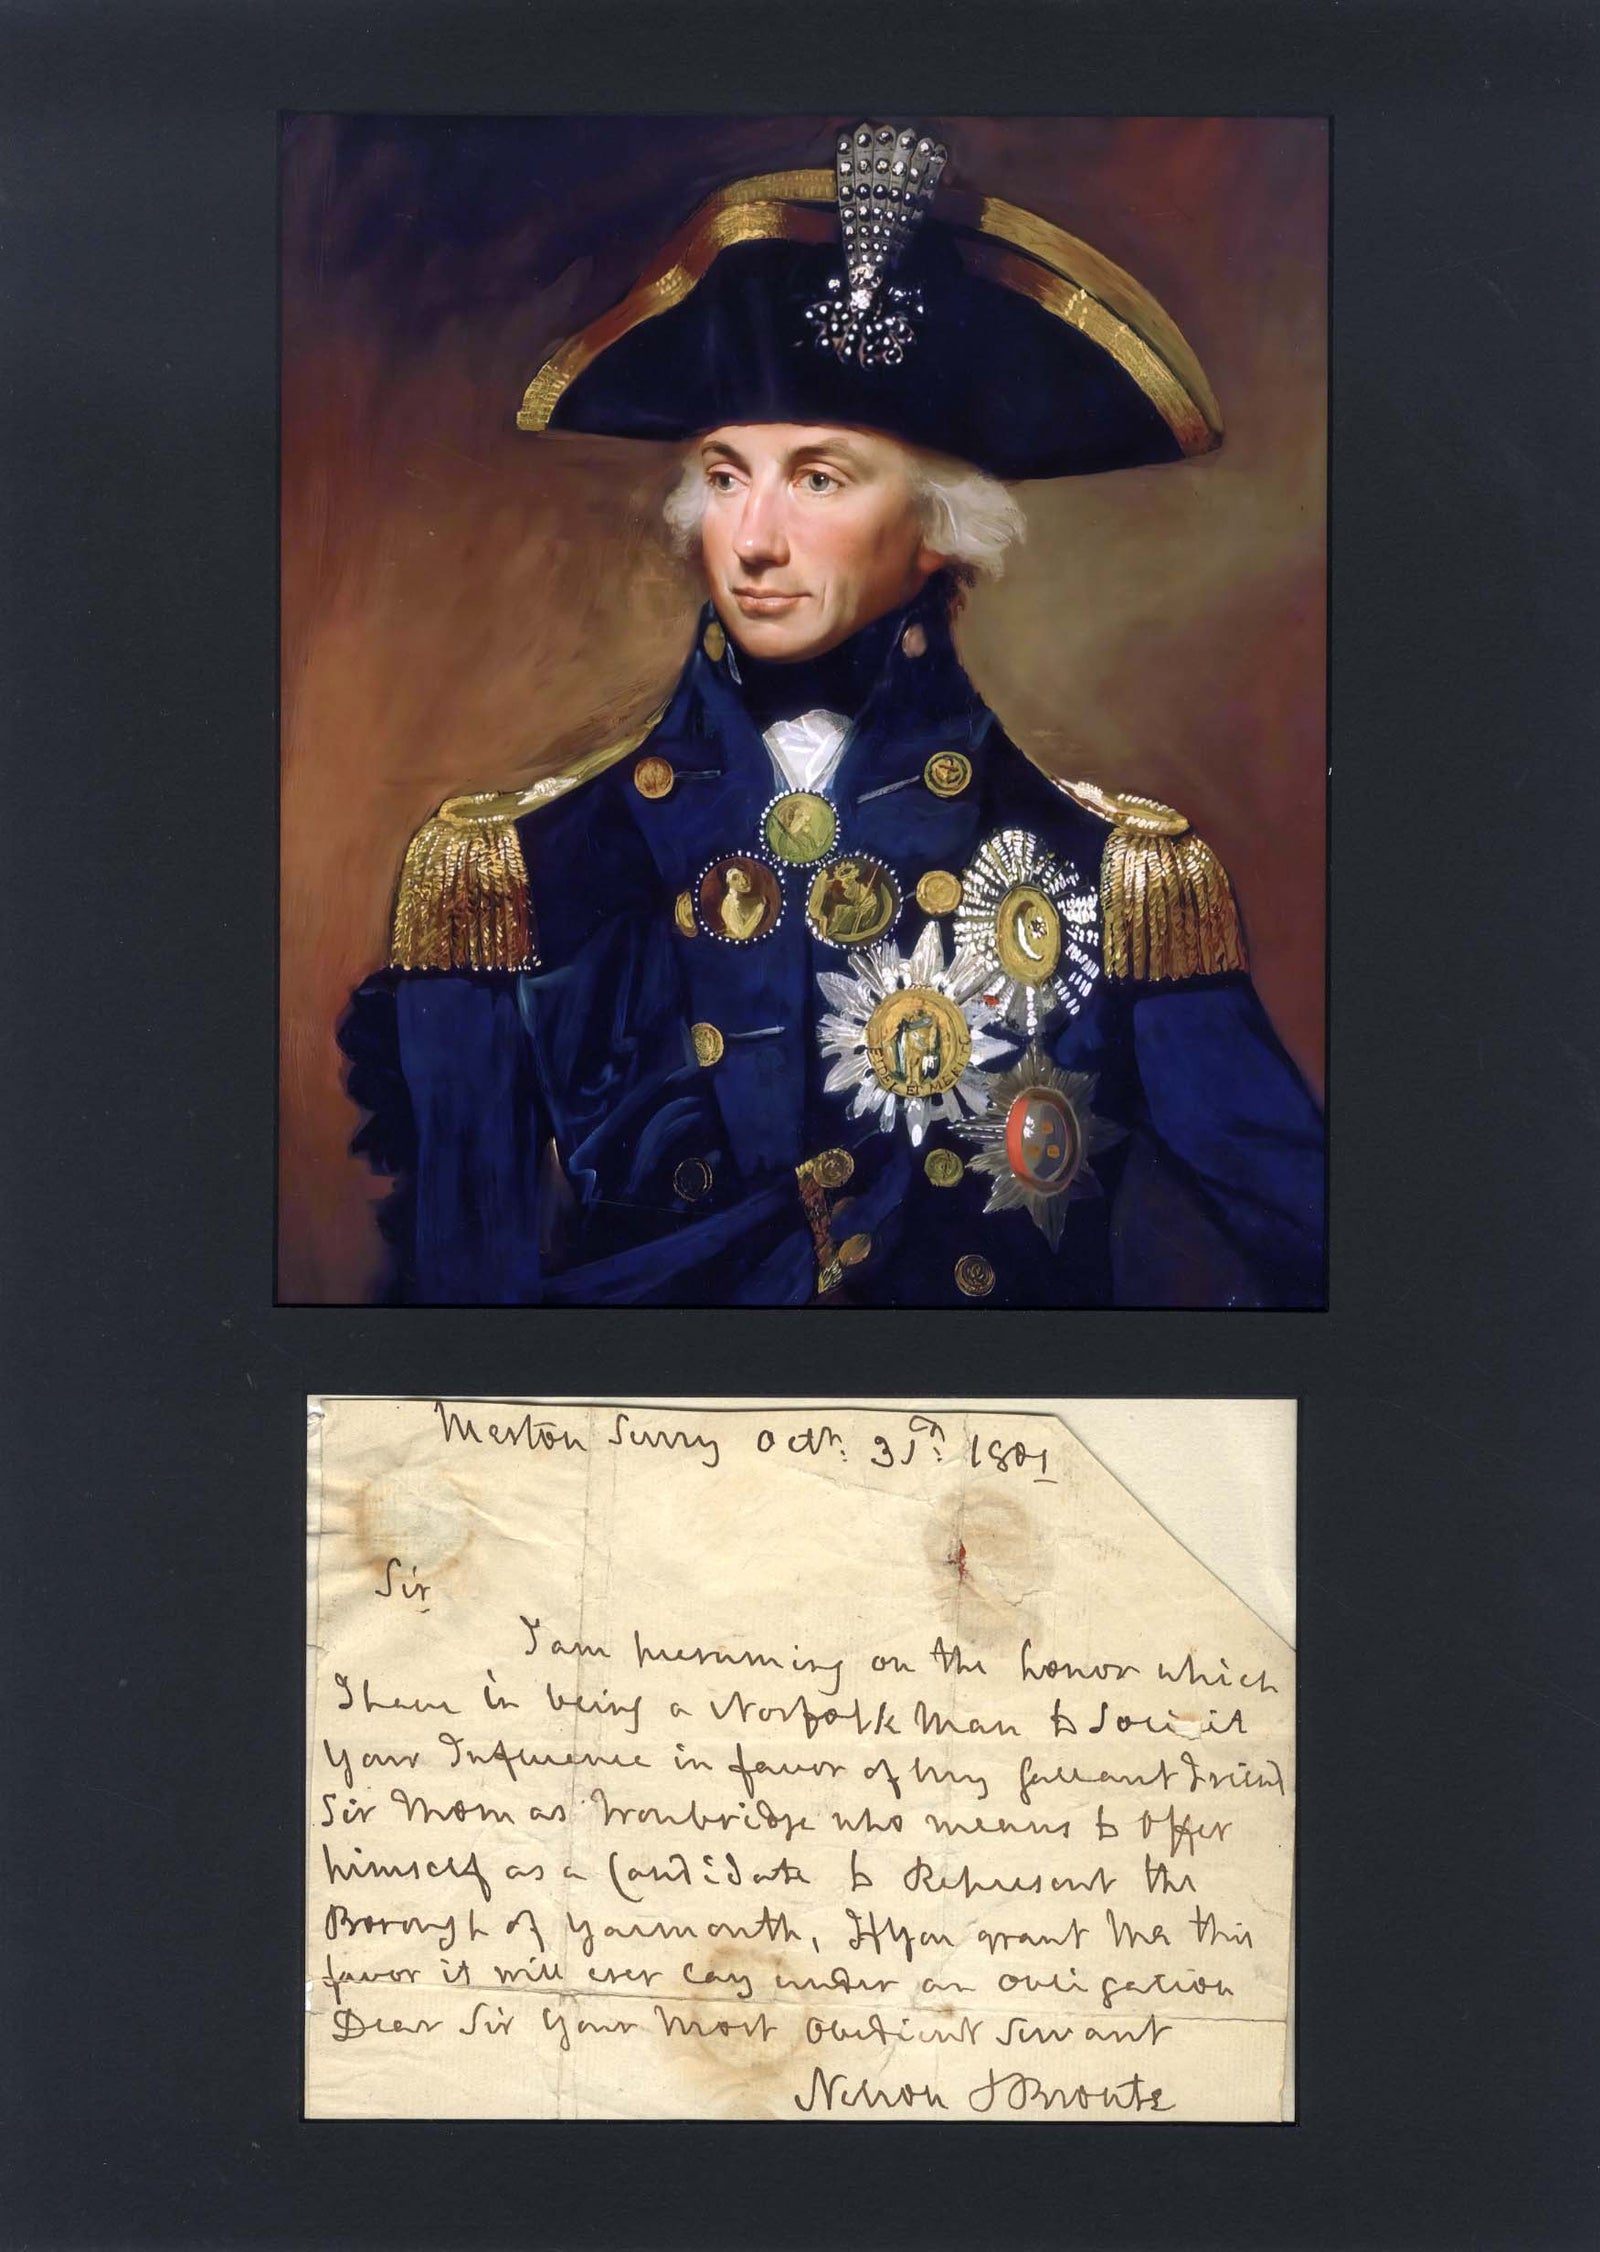 FIDES ET MERITO
Merton Surry Octr: 31st: 1801
Sir
I am presuming on the honor which
I have in being a Norfolk Man to Soli it
Your Influence in favor of My Gallant Friend
Sir Thomas Troubridge who means to offer
himself as a Candidate to Represent the
Borough of Yarmouth, If You grant Me this
favor it will ever lay under an obligation
Dear Sir Your Most Obedient Servant
Nelson & Bronte